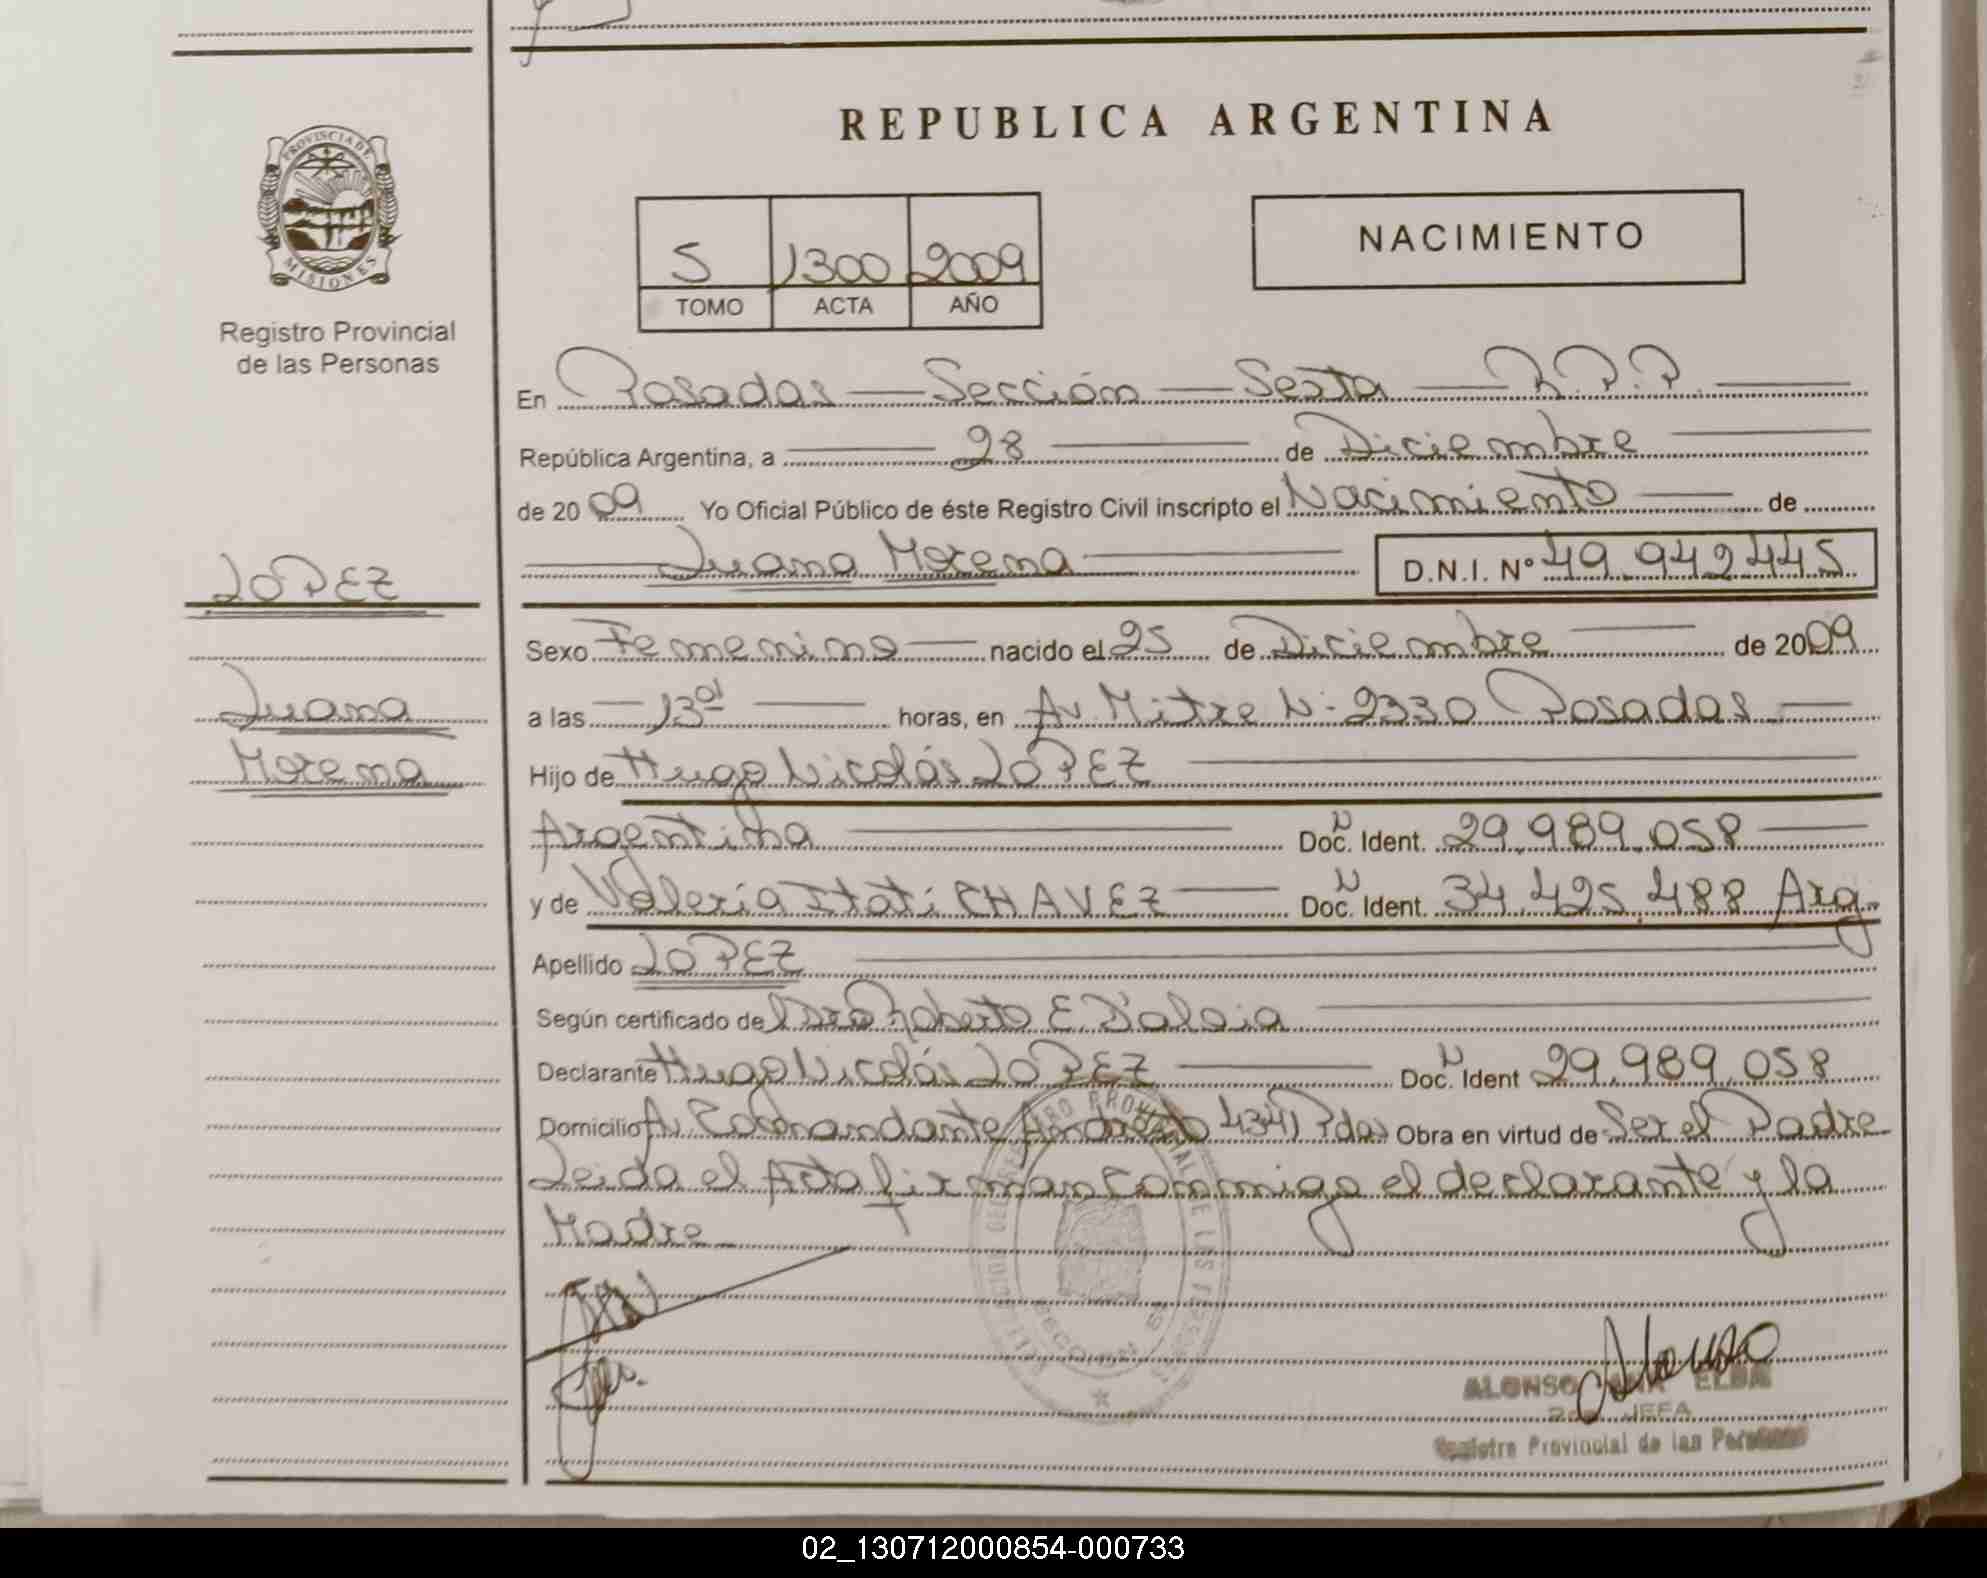 PROVINCIA DE
MISIONES
Registro Provincial
de las Personas
LOPEZ
Juana
Morena
REPUBLICA ARGENTINA
5 1300 2009
TOMO ACTA AÑO
NACIMIENTO
En Posadas — Sección — Sexta — R.P.P.
República Argentina, a 28 de Diciembre
de 2009 Yo Oficial Público de éste Registro Civil inscripto el Nacimiento de
Juana Morena D.N.I. Nº 49.942.445
Sexo Femenino nacido el 25 de Diciembre de 2009
a las 13 01 horas, en Av. Mitre N: 2330 Posadas
Hijo de Hugo Nicolás LOPEZ
Argentina Doc. Ident. 29.989.058
y de Valeria Itati CHAVEZ Doc. Ident. 34.425.488 Arg.
Apellido LOPEZ
Según certificado de Roberto E
Declarante Hugo Nicolás LOPEZ Doc. Ident 29.989.058
Domicilio Av. Comandante 4341 Pdas Obra en virtud de Ser el Padre
Leida el Acta firman conmigo el declarante y la
Madre
ALONSO ANA ELBA
JEFA
Registro Provincial de las Personas
02_130712000854-000733